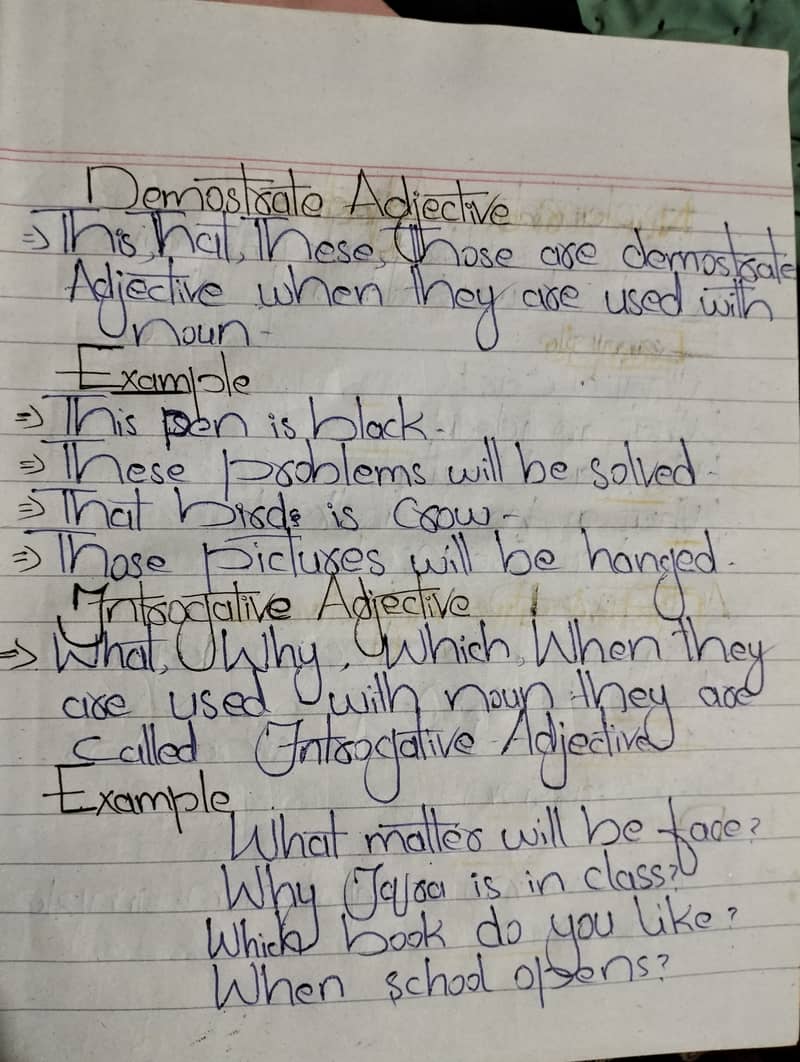 Demostrate Adjective
⇒ This, that, These, those are demostrate
Adjective when they are used with
noun.
Example
⇒ This pen is black.
⇒ These problems will be solved.
⇒ That birds is Crow.
⇒ Those pictures will be hanged.
Introgative Adjective
⇒ What, Why, Which, When they
are used with noun they are
Called Introgative Adjective
Example
What matter will be face?
Why is in class?
Which book do you like?
When school opens?